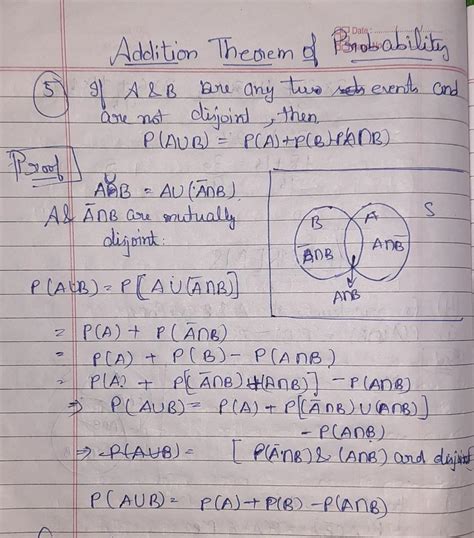 Date:
Addition Theorem of Probability
5 If A & B are any two events and
are not disjoint, then
P(A∪B) = P(A)+P(B)-P(A∩B)
Proof
A∪B = A∪(A̅∩B)
A & A̅∩B are mutually
disjoint.
S
B A
A̅∩B A∩B̅
A∩B
P(A∪B) = P[A∪(A̅∩B)]
= P(A) + P(A̅∩B)
= P(A) + P(B) - P(A∩B)
= P(A) + P[(A̅∩B)+(A∩B)] - P(A∩B)
⇒ P(A∪B) = P(A) + P[(A̅∩B)∪(A∩B)]
- P(A∩B)
⇒ P(A∪B) = [P(A̅∩B) & (A∩B) are disjoint
P(A∪B) = P(A)+P(B)-P(A∩B)